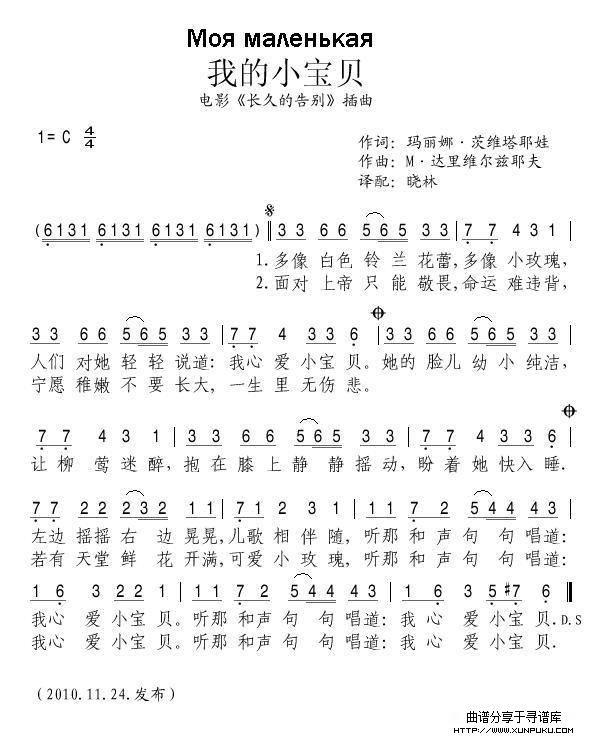 Моя маленькая
我的小宝贝
电影《长久的告别》插曲
1= C 4/4
作词：玛丽娜·茨维塔耶娃
作曲：M·达里维尔兹耶夫
译配：晓林
(6131 6131 6131 6131) 3 3 6 6 565 33 7 7 431
1.多像 白色 铃 兰 花蕾,多像 小玫瑰,
2.面对 上帝 只 能 敬畏,命运 难违背,
33 66 565 33 77 4 33 6 33 66 565 33
人们 对她 轻轻 说道: 我心 爱 小宝 贝。她的 脸儿 幼 小 纯洁,
宁愿 稚嫩 不 要 长大, 一生 里 无伤 悲。
7 7 4 3 1 33 66 565 33 77 44 33 6
让 柳 莺 迷 醉, 抱 在 膝 上 静 静 摇 动, 盼 着 她 快入 睡.
77 22 232 11 71 2 31 11 72 544 43
左边 摇摇 右 边 晃晃,儿歌 相 伴 随, 听那 和声 句 句 唱道:
若有 天堂 鲜 花 开满,可爱 小 玫 瑰, 听那 和声 句 句 唱道:
1 6 3 22 1 11 72 544 43 1 6 3 5#7 6
我心 爱 小宝 贝。听那 和声 句 句 唱道: 我 心 爱 小宝 贝. D.S
我心 爱 小宝 贝。听那 和声 句 句 唱道: 我 心 爱 小宝 贝.
(2010.11.24.发布)
曲谱分享于寻谱库
HTTP://WWW.XUNPUKU.COM